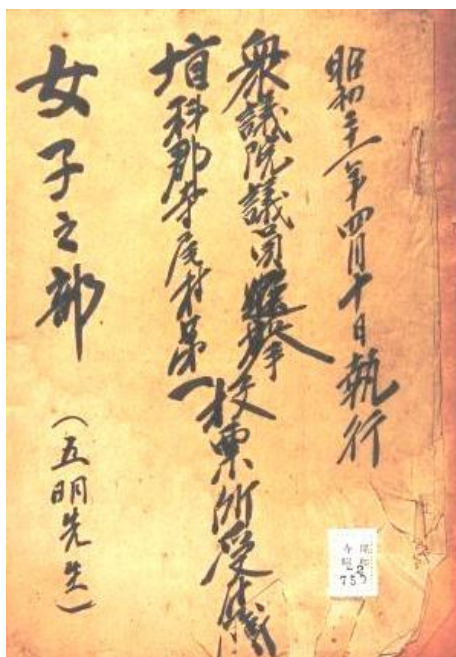 昭和二十一年四月十日執行
衆議院議員選挙
埴科郡寺尾村第一投票所受付
女子之部
(五明先生)
尾
寺
752